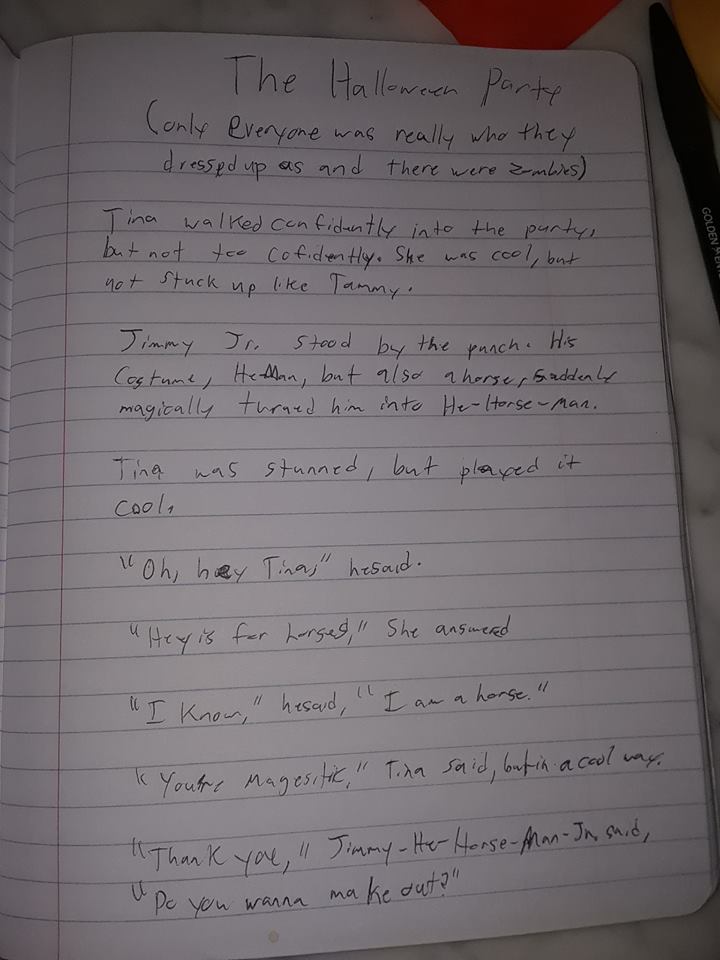 The Halloween Party
(only everyone was really who they
dressed up as and there were zombies)
Tina walked confidently into the party,
but not too cofidently. She was cool, but
not stuck up like Tammy.
Jimmy Jr. stood by the punch. His
costume, He-Man, but also a horse, suddenly
magically turned him into He-Horse-Man.
Tina was stunned, but played it
cool.
"Oh, hey Tina," he said.
"Hey is for horses," She answered
"I know," he said, "I am a horse."
"You're magesitik," Tina said, but in a cool way.
"Thank you," Jimmy-He-Horse-Man-Jr. said,
"Do you wanna make out?"
GOLDEN